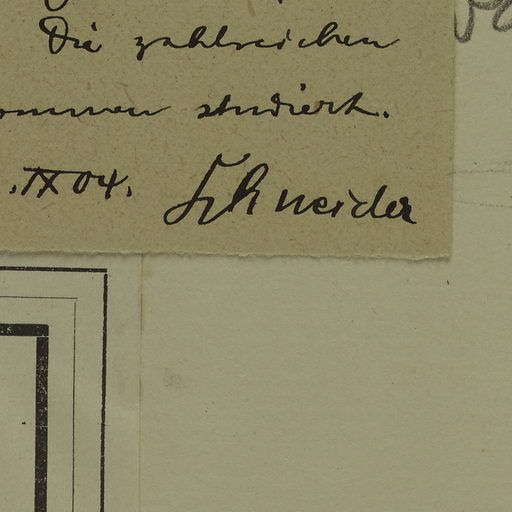 Die zahlreichen
ommen studiert.
.IX 04. Schneider